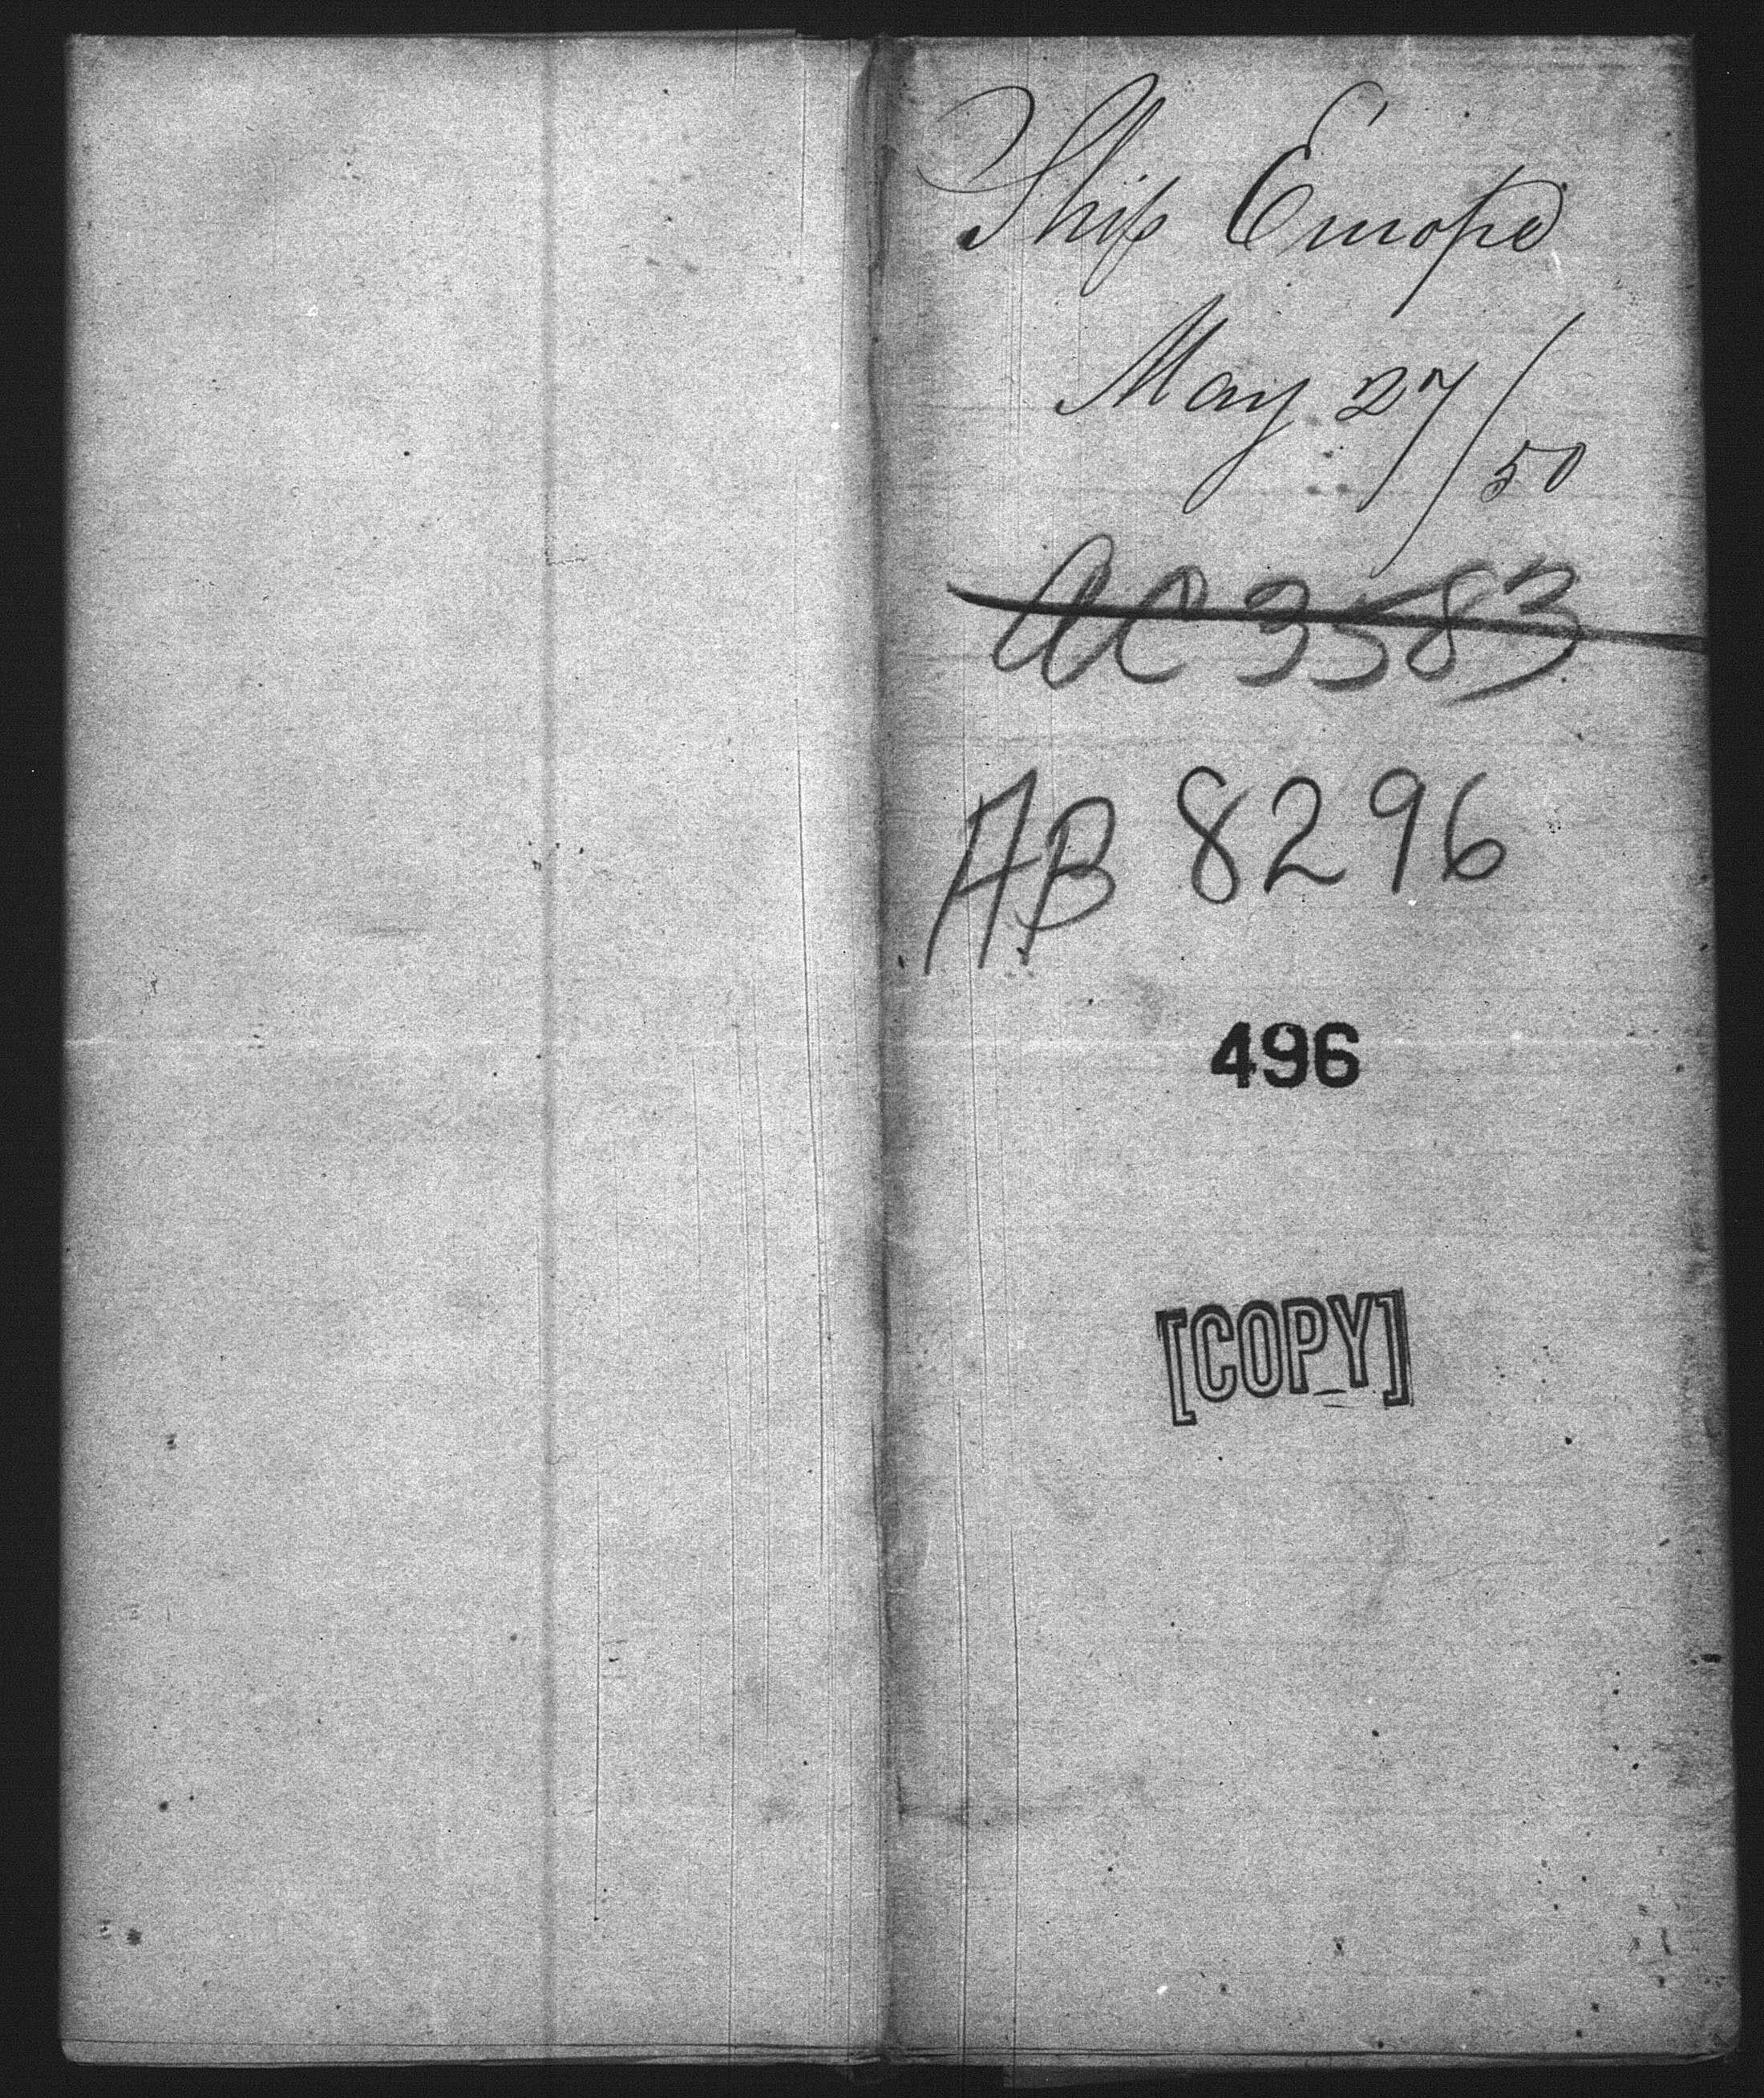 Ship Europe
May 27/50
AC 3583
AB 8296
496
[COPY]